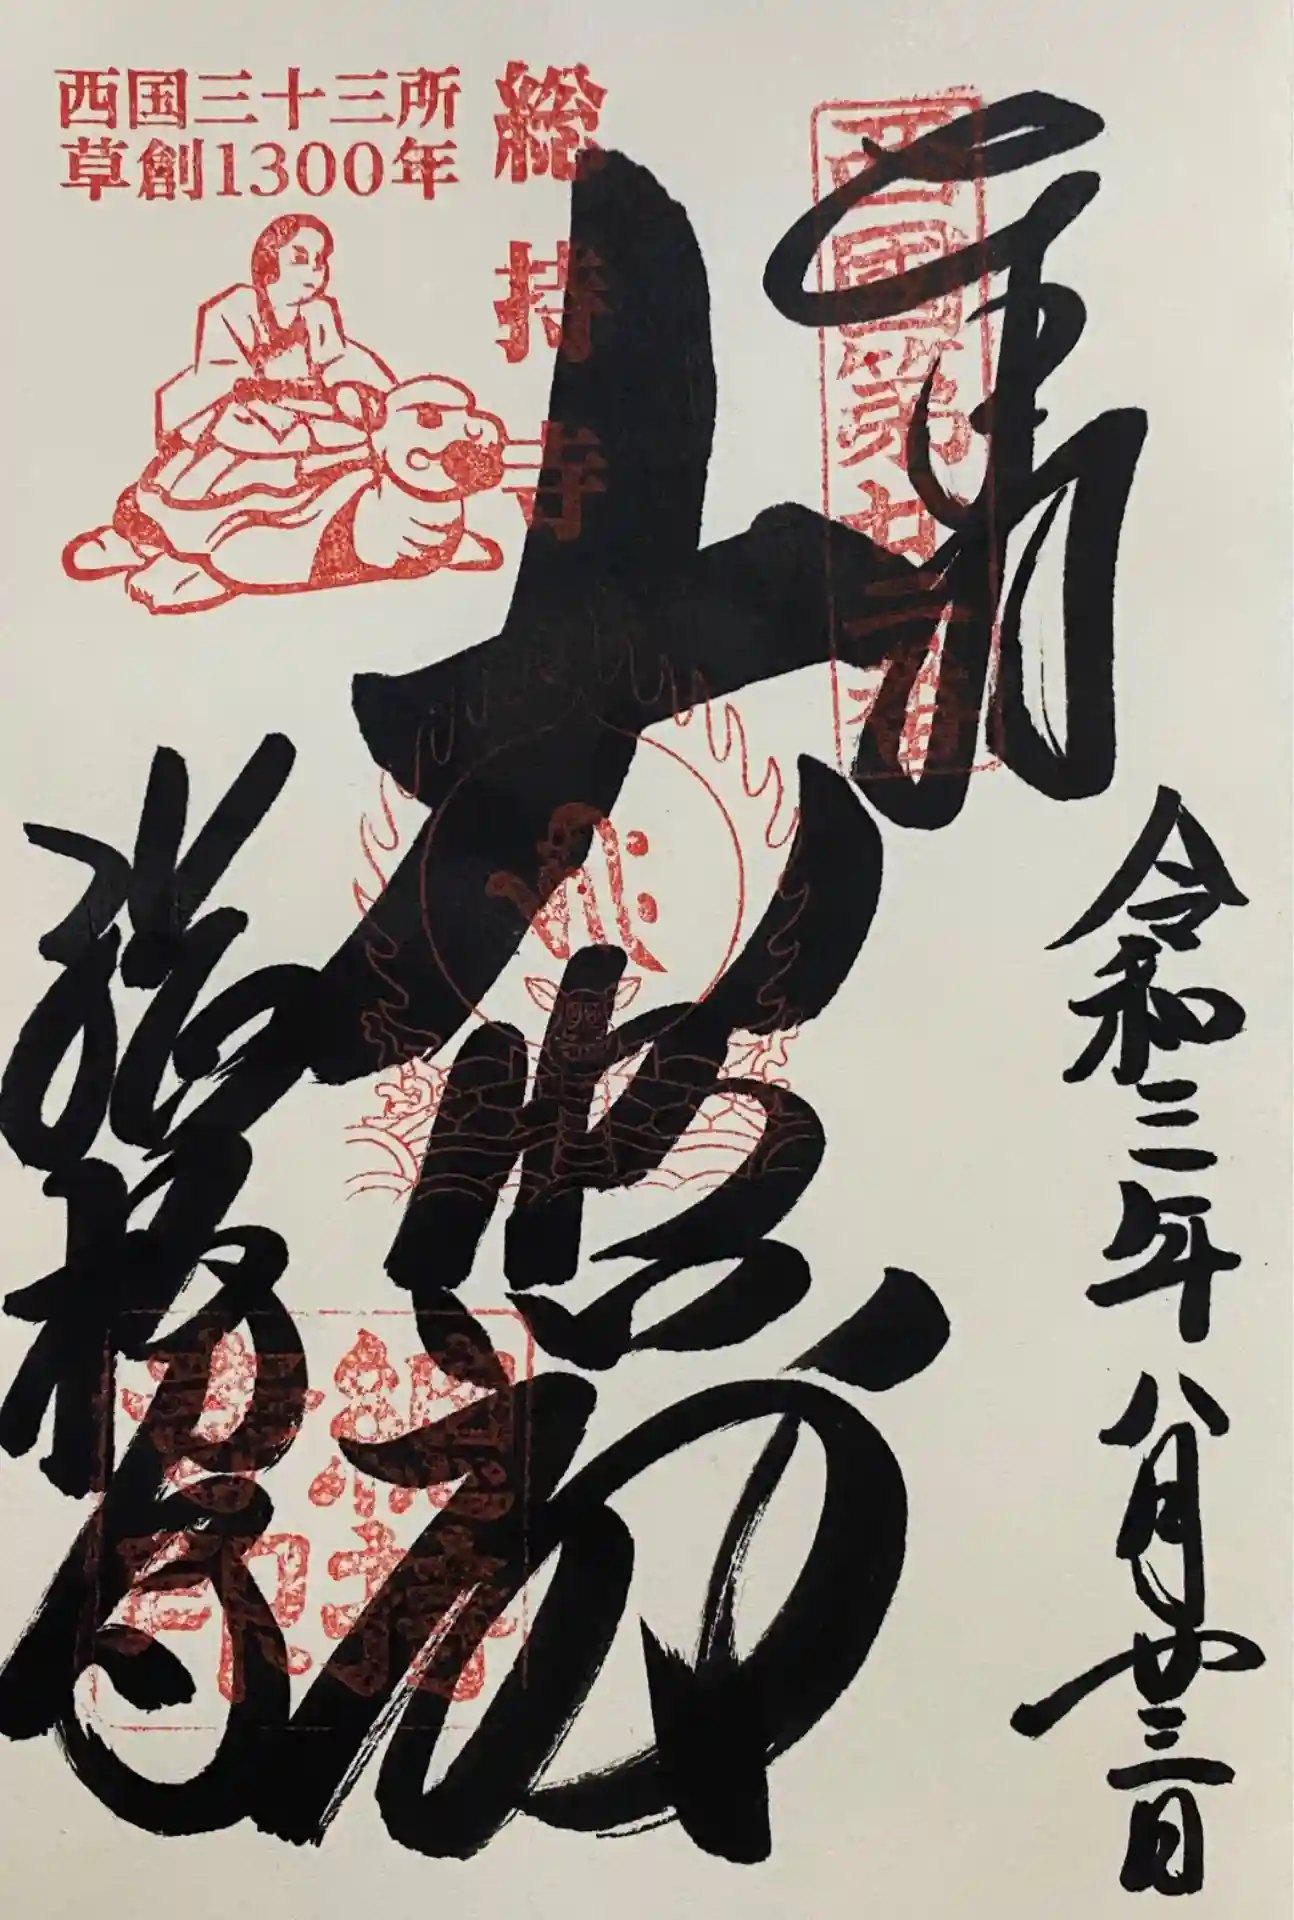 奉拝
西國第廿二番
令和三年八月廿三日
大悲殿
総持寺
西国三十三所
草創1300年
総持寺
總持
寺印